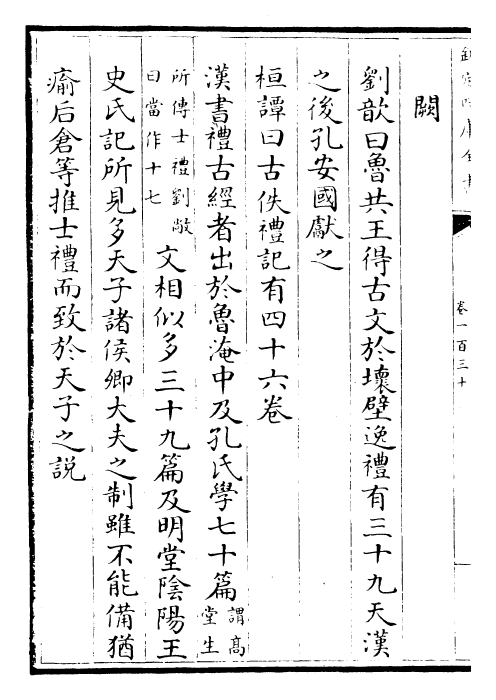 卷一百三十
闕
劉歆曰魯共王得古文於壞壁逸禮有三十九天漢
之後孔安國獻之
桓譚曰古佚禮記有四十六卷
漢書禮古經者出於魯淹中及孔氏學七十篇
謂髙
堂生
所傳士禮劉敞
曰當作十七
文相似多三十九篇及明堂陰陽王
史氏記所見多天子諸侯卿大夫之制雖不能備猶
瘉后倉等推士禮而致於天子之説